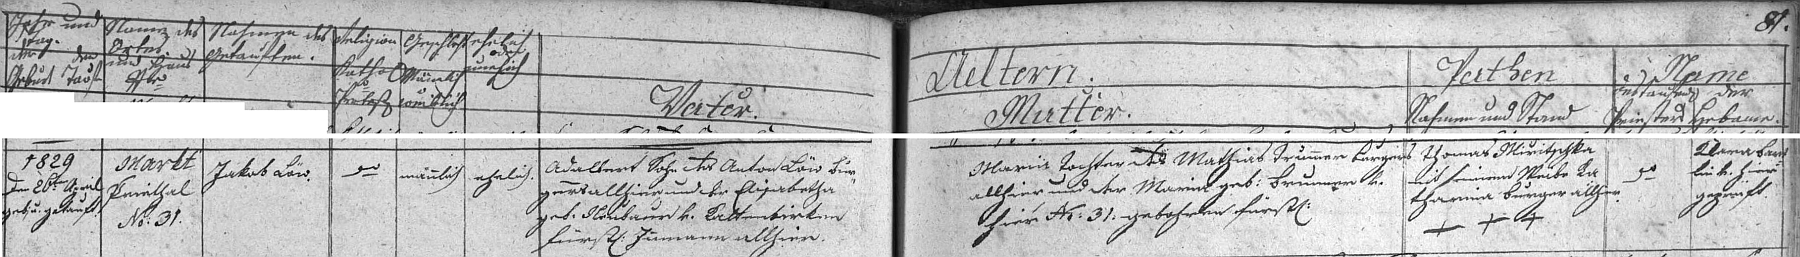 81.
Jahr und
Tag.
der
Geburt der Tauf
Name des
Ortes
und Haus
Nro
Nahmen des
Getauften.
Religion
Kathol
Geschlecht
Männlich
weiblich
ehelich
oder
unehlich
Vater.
Aeltern.
Mutter.
Pathen
Nahmen und Stand
Name
des taufend der
Priesters Hebame.
1829
den 26ten April
geb. u. getauft.
Markt
Nr: 31.
Jakob Löw.
männlich
ehelich.
Adalbert Sohn des Anton Löw Bür
gers allhier und der Elisabetha
geb. Neubauer v. Kaltenbirken
fürstl: allhier.
Maria Tochter des Mathias Trummer Burgers
allhier und der Maria geb: Brunner v.
hier No: 31. gebohren fürstl:
Thomas Miritschka
mit seinem Weibe Ka
tharina Burger allhier.
+ + +
Klara
v. hier
geprüft.